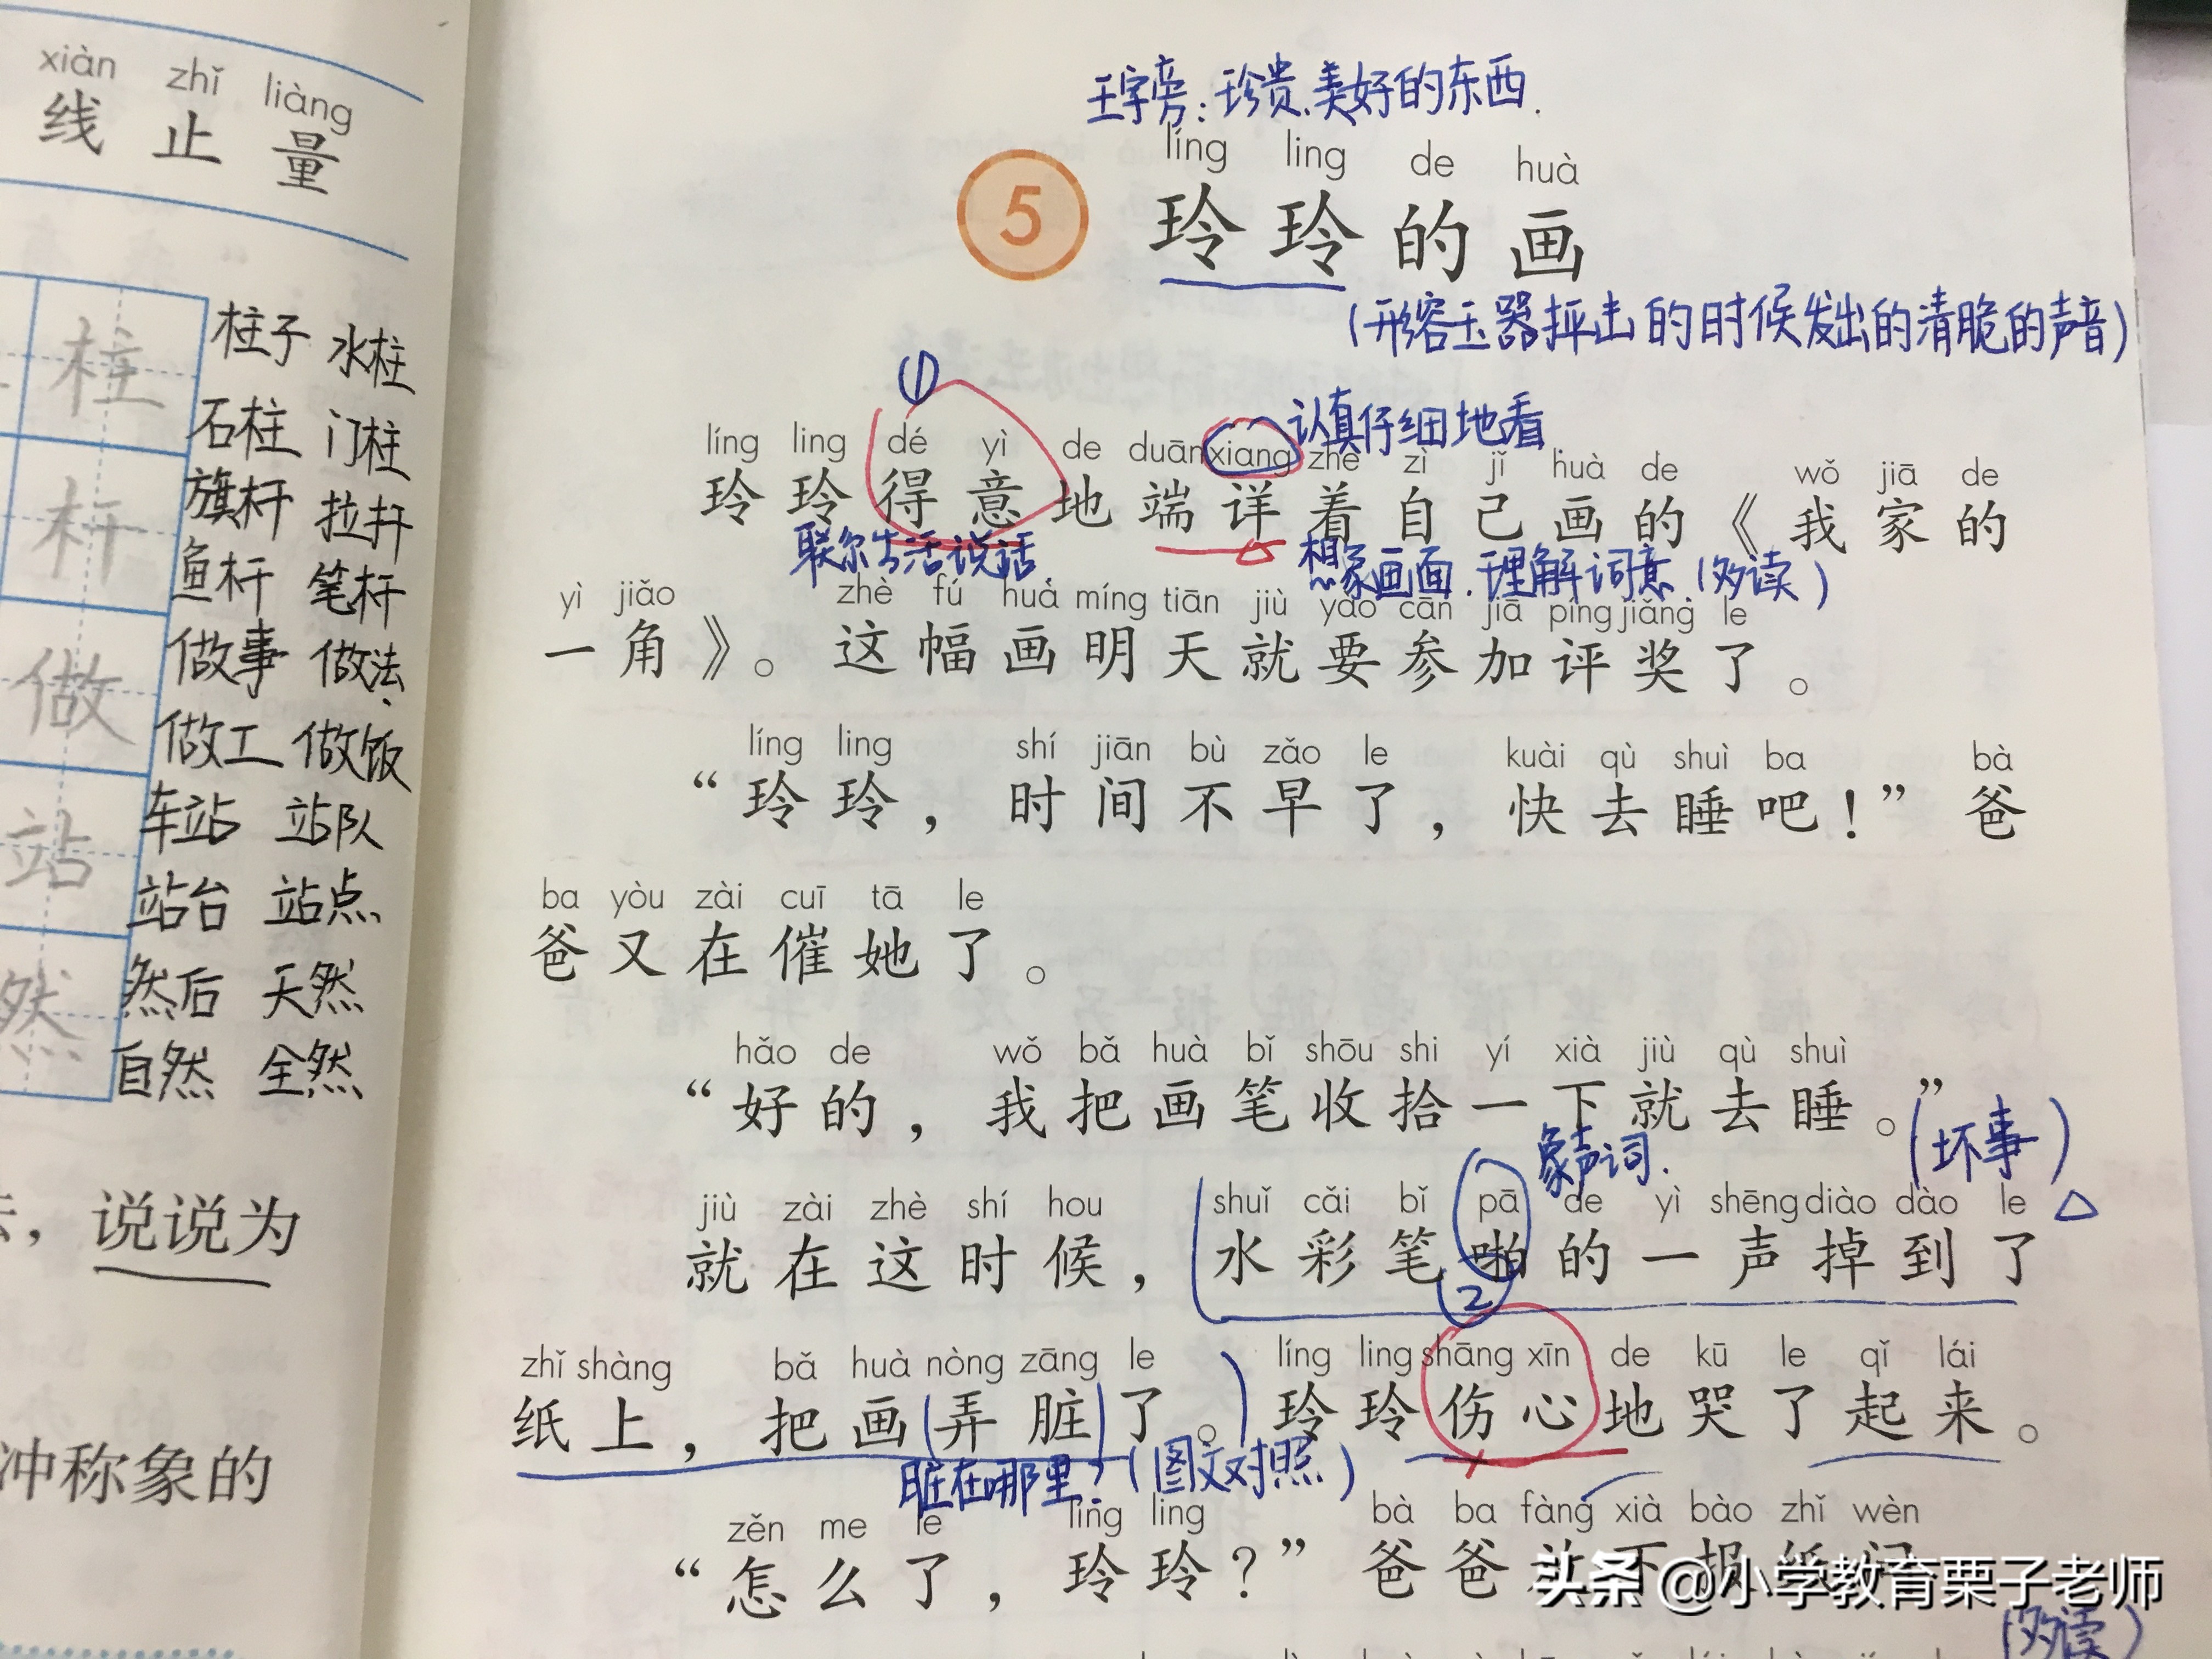 xiàn zhǐ liàng
线 止 量
柱 柱子 水柱
石柱 门柱
杆 旗杆 拉杆
鱼杆 笔杆
做 做事 做法
做工 做饭
站 车站 站队
站台 站点
然 然后 天然
自然 全然
，说说为
冲称象的
王字旁：珍贵、美好的东西.
líng ling de huà
5 玲玲的画
(形容玉器抨击的时候发出的清脆的声音)
① 认真仔细地看
líng ling dé yì de duān xiang zhe zì jǐ huà de wǒ jiā de
玲玲得意地端详着自己画的《我家的
联系生活说话 想象画面.理解词意(多读)
yì jiǎo zhè fú huà míng tiān jiù yào cān jiā píng jiǎng le
一角》。这幅画明天就要参加评奖了。
líng ling shí jiān bù zǎo le kuài qù shuì ba bà
“玲玲，时间不早了，快去睡吧！”爸
ba yòu zài cuī tā le
爸又在催她了。
hǎo de wǒ bǎ huà bǐ shōu shi yí xià jiù qù shuì
“好的，我把画笔收拾一下就去睡。”
象声词. (坏事)
jiù zài zhè shí hou shuǐ cǎi bǐ pā de yì shēng diào dào le
就在这时候，水彩笔啪的一声掉到了
②
zhǐ shàng bǎ huà nòng zāng le líng ling shāng xīn de kū le qǐ lái
纸上，把画(弄脏)了。玲玲伤心地哭了起来。
脏在哪里？(图文对照)
zěn me le líng ling bà ba fàng xià bào zhǐ wèn
“怎么了，玲玲？”爸爸放下报纸问
头条 @小学教育栗子老师
(多读)